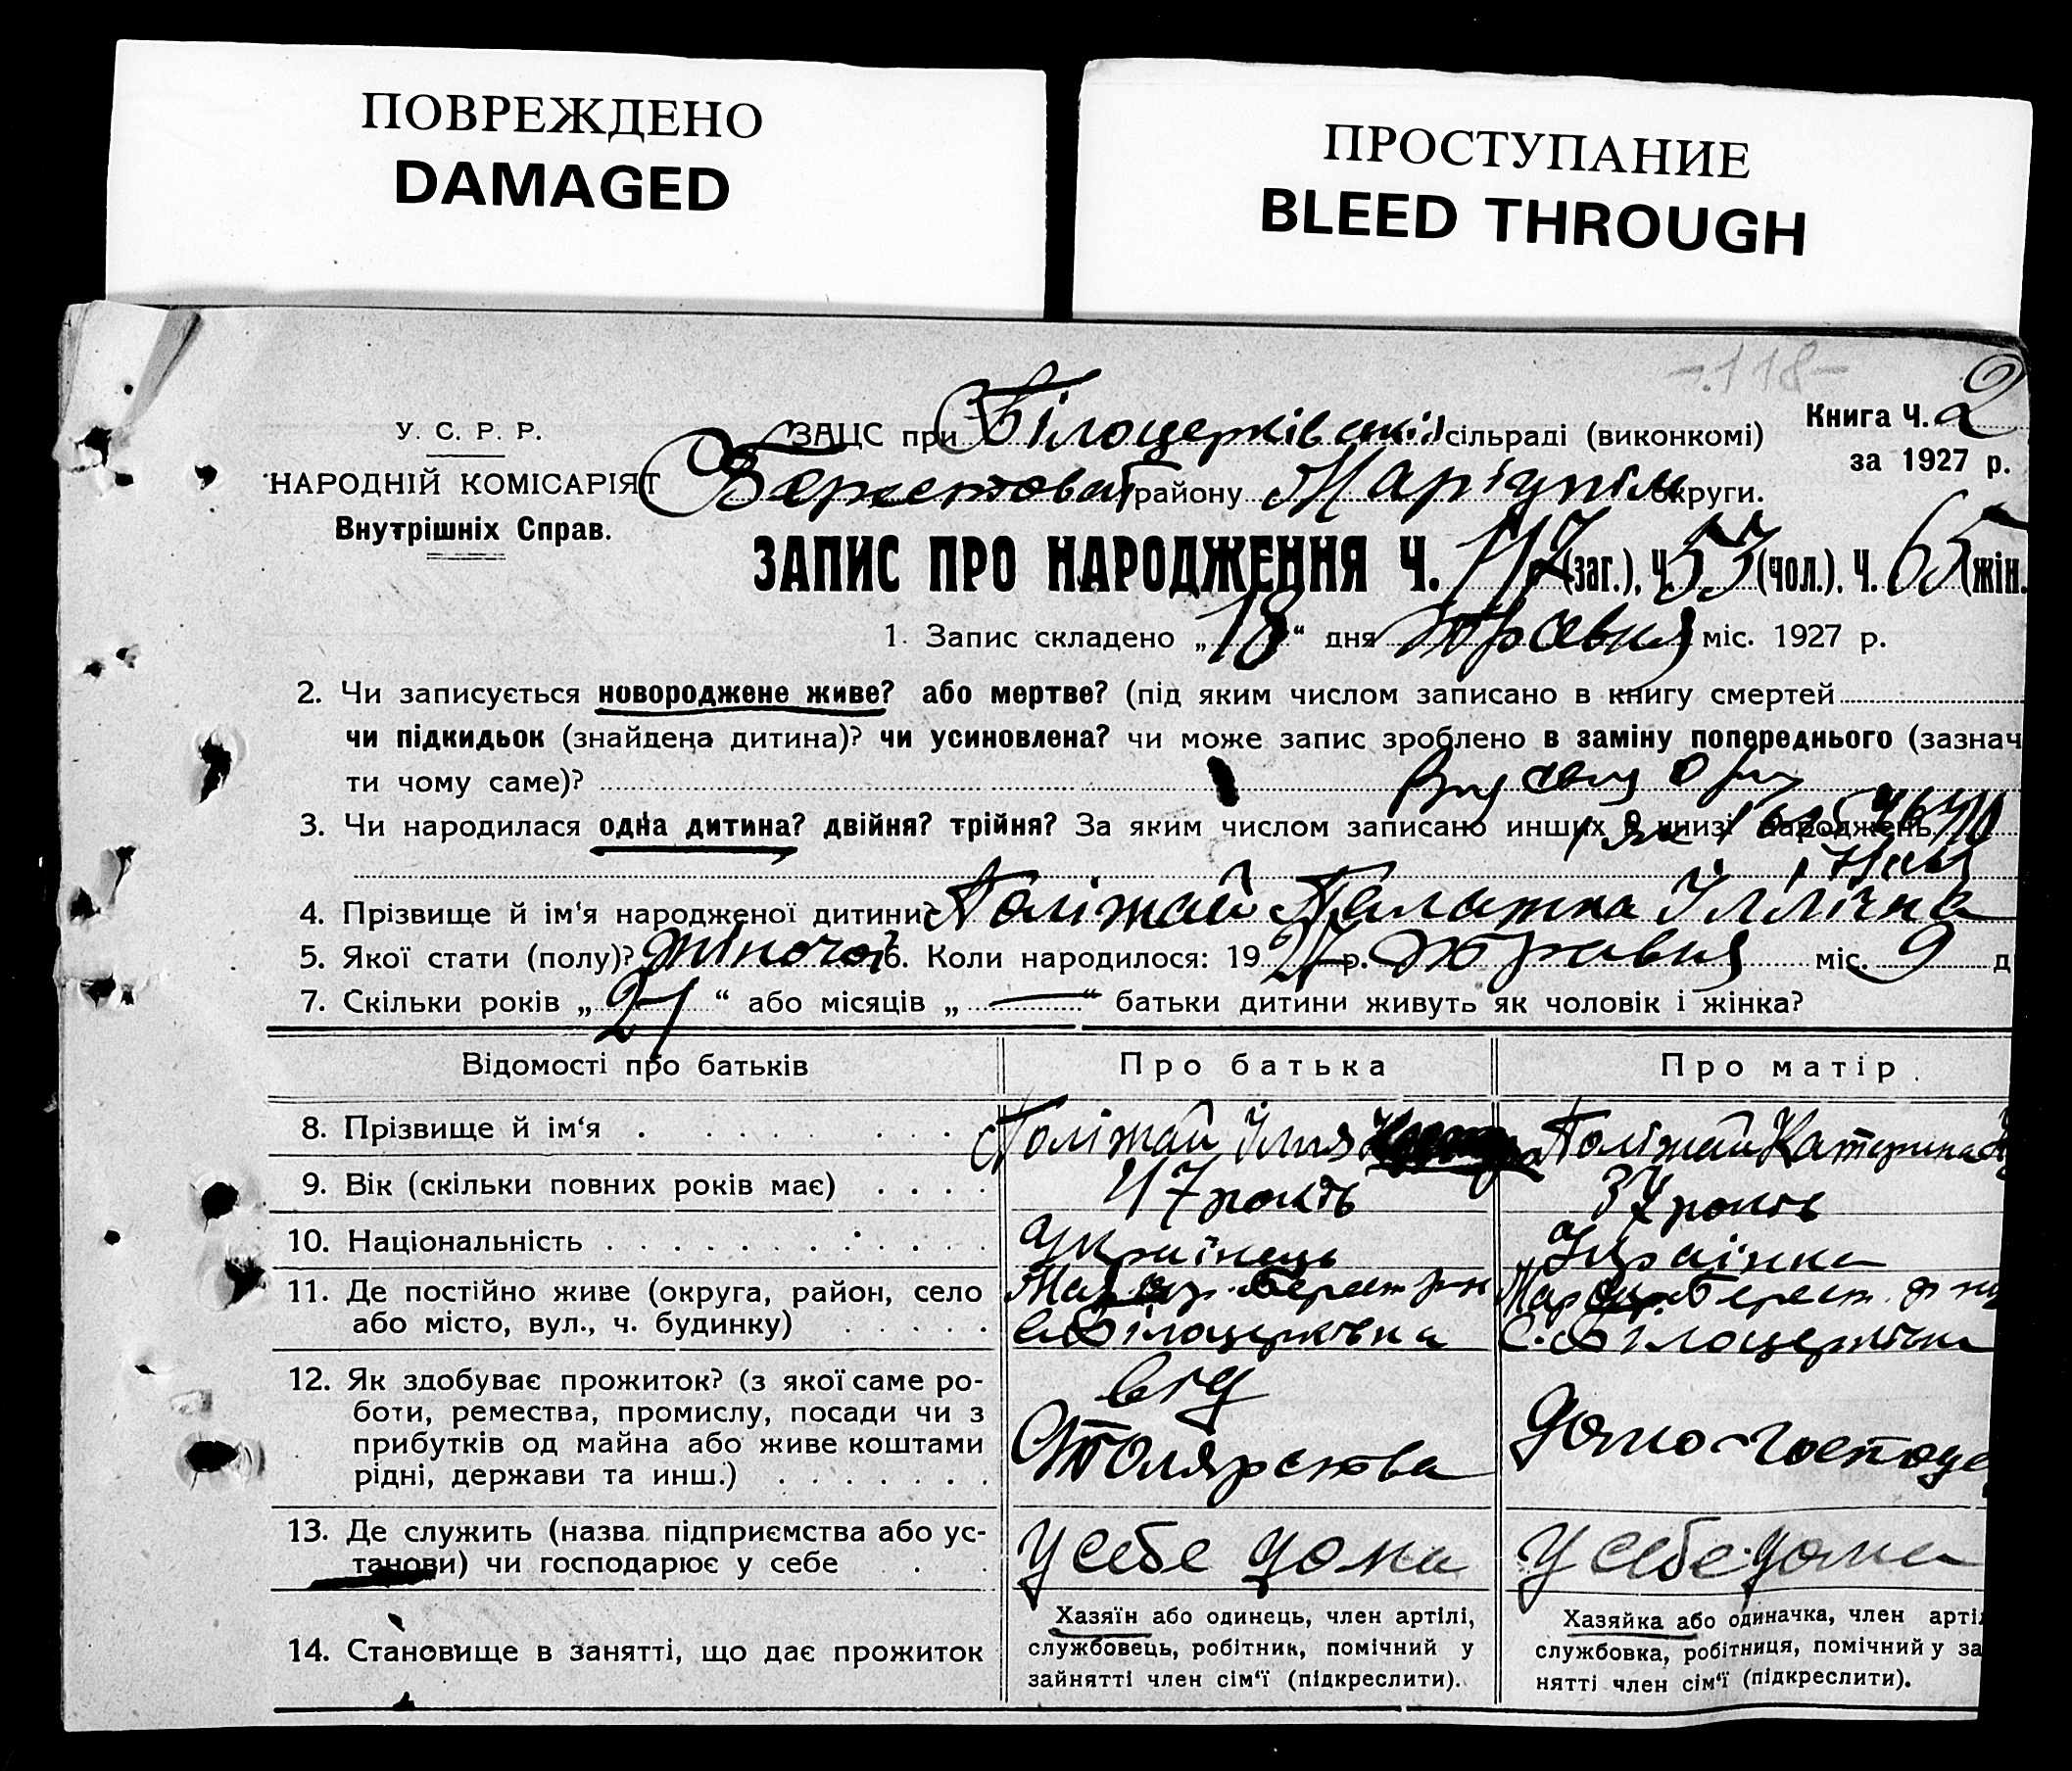 ПОВРЕЖДЕНО
DAMAGED
ПРОСТУПАНИЕ
BLEED THROUGH
-118-
У. С. Р. Р.
НАРОДНІЙ КОМІСАРІЯТ
Внутрішніх Справ.
Книга Ч. 2
за 1927 р.
ЗАЦС при Білоцерківській сільраді (виконкомі)
Берестоват району Маріупіль округи.
ЗАПИС ПРО НАРОДЖЕННЯ Ч. (заг.), Ч. 53 (чол.), Ч. 65 (жін.
1. Запис складено „18“ дня травня міс. 1927 р.
2. Чи записується новороджене живе? або мертве? (під яким числом записано в книгу смертей
чи підкидьок (знайдена дитина)? чи усиновлена? чи може запис зроблено в заміну попереднього (зазнач
ти чому саме)?
3. Чи народилася одна дитина? двійня? трійня? За яким числом записано инших в книзі народжень
4. Прізвище й ім‘я народженої дитини? Поліжай Палажка Іллічна
5. Якої стати (полу)? жіночої 6. Коли народилося: 1927 р. травня міс. 9 д
7. Скільки років „21“ або місяців „—“ батьки дитини живуть як чоловік і жінка?
Відомості про батьків
Про батька
Про матір
8. Прізвище й ім‘я
Поліжай Ілля
Поліжай Катерина
9. Вік (скільки повних років має)
47 років
37 років
10. Національність
Українець
Українка
11. Де постійно живе (округа, район, село
або місто, вул., ч. будинку)
Берест р-н
с. Білоцерківка
Берест.
с. Білоцерківка
12. Як здобуває прожиток? (з якої саме ро-
боти, ремества, промислу, посади чи з
прибутків од майна або живе коштами
рідні, держави та инш.)
від
Столярства
Домо-господ
13. Де служить (назва підприємства або ус-
танови) чи господарює у себе
У себе дома
У себе дома
14. Становище в занятті, що дає прожиток
Хазяїн або одинець, член артілі,
службовець, робітник, помічний у
зайнятті член сім‘ї (підкреслити).
Хазяйка або одиначка, член арті
службовка, робітниця, помічний у за
нятті член сім‘ї (підкреслити).